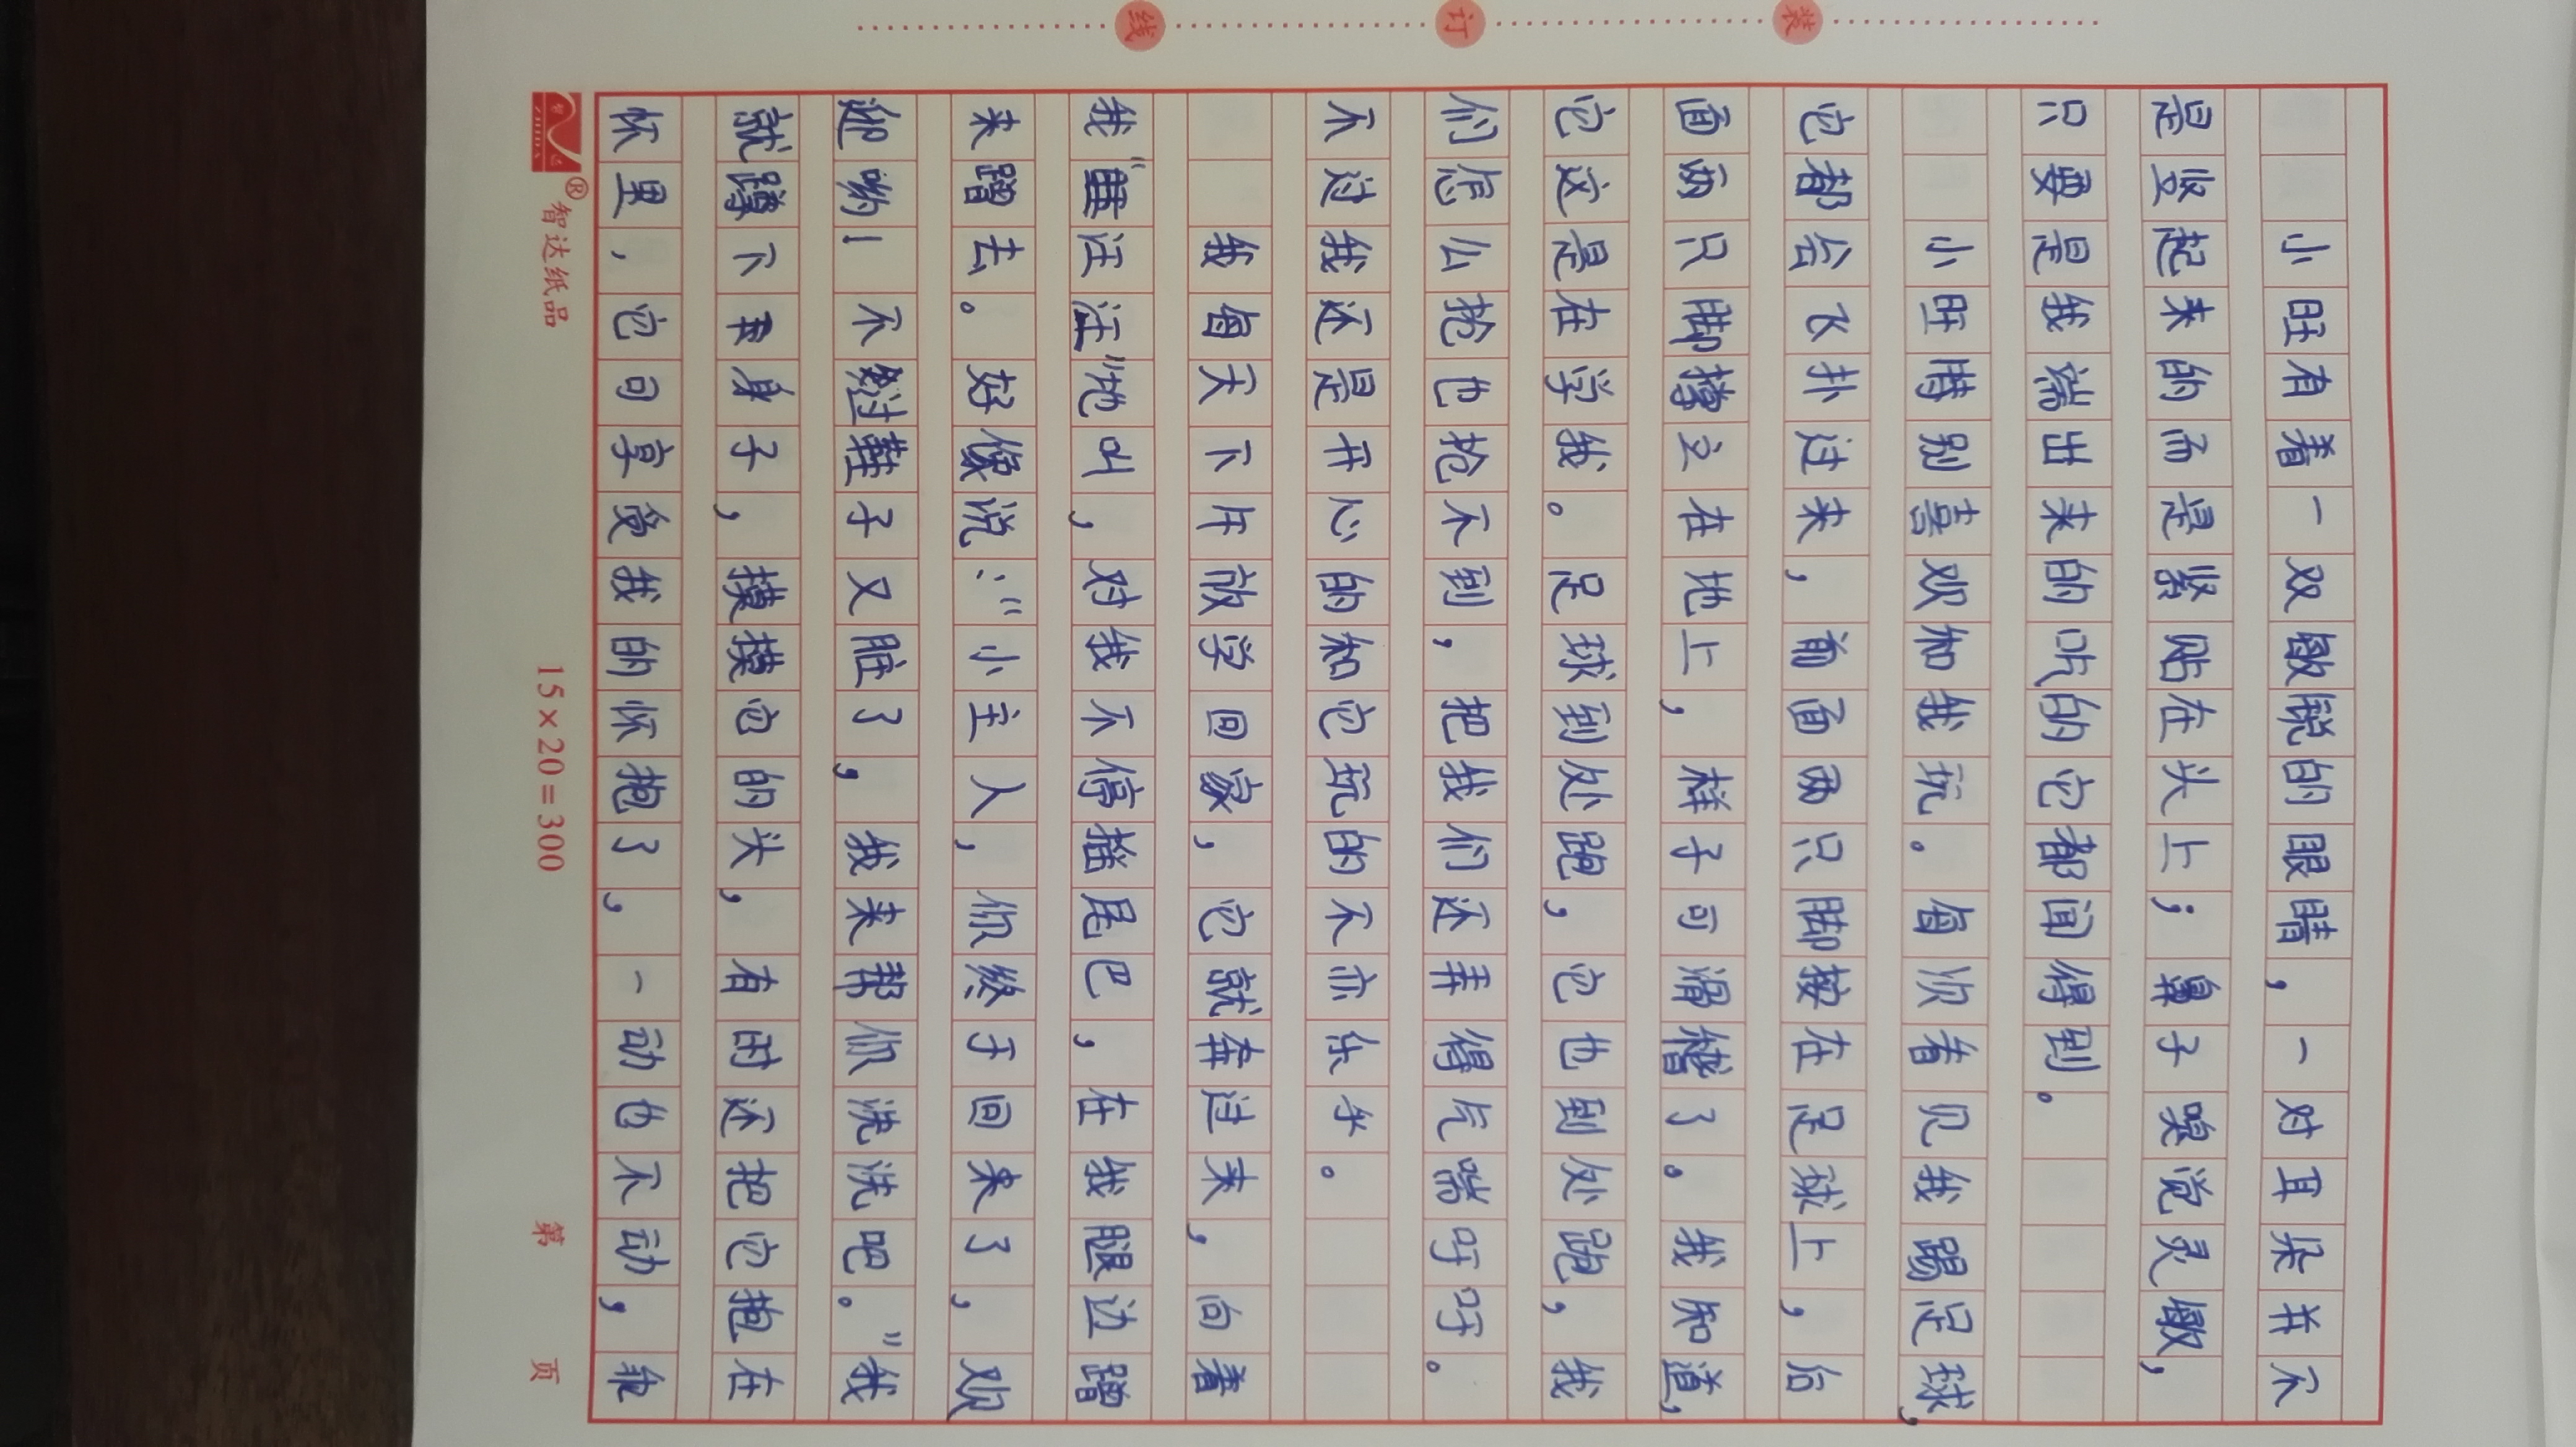 装 订 线
小旺有着一双敏锐的眼睛,一对耳朵并不
是竖起来的而是紧贴在头上;鼻子嗅觉灵敏,
只要是我端出来的吃的它都闻得到。
小旺特别喜欢和我玩。每次看见我踢足球,
它都会飞扑过来,前面两只脚按在足球上,后
面两只脚撑立在地上,样子可滑稽了。我知道,
它这是在学我。足球到处跑,它也到处跑,我
们怎么抢也抢不到,把我们还弄得气喘吁吁。
不过我还是开心的和它玩的不亦乐乎。
我每天下午放学回家,它就奔过来,向着
我“汪汪”地叫,对我不停摇尾巴,在我腿边蹭
来蹭去。好像说:“小主人,你终于回来了,欢
迎哟!不过鞋子又脏了,我来帮你洗洗吧。”我
就蹲下身子,摸摸它的头,有时还把它抱在
怀里,它可享受我的怀抱了,一动也不动,
智达纸品
15×20=300
第 页